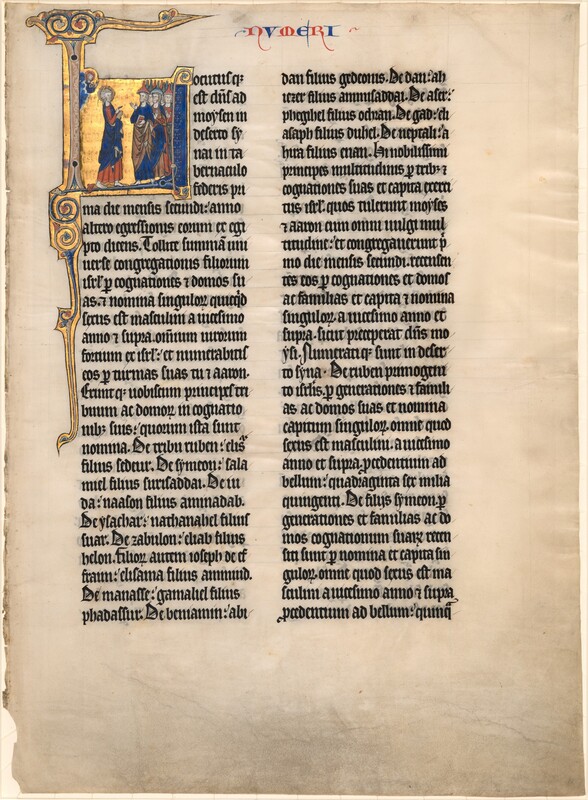 NUMERI
Locutusq;
est dn̄s ad
moysen in
deserto sy
nai in ta
bernaculo
federis pri
ma die mensis secundi: anno
altero egressionis eorum ex egi
pto dicens. Tollite summā uni
uerse congregationis filiorum
isrl̄. ꝑ cognationes ⁊ domos su
as. ⁊ nomina singulorꝫ quicqͥd
sexus est masculini a uicesimo
anno ⁊ supra. omnium uirorum
fortium ex isrl̄: et numerabitis
eos ꝑ turmas suas tu ⁊ aaron.
Eruntq; uobiscum principes tri
buum ac domorꝫ in cognatio
nibꝫ suis: quorum ista sunt
nomina. De tribu ruben: elisur
filius sedeur. De symeon: sala
miel filius surisaddai. De iu
da: naason filius aminadab.
De ysachar: nathanahel filius
suar. De zabulon: eliab filius
helon. Filiorꝫ autem ioseph de ef
fraim: elisama filius ammiud.
De manasse: gamaliel filius
phadassur. De beniamin: abi
dan filius gedeonis. De dan: ah
iezer filius ammisaddai. De aser:
pheghel filius ochran. De gad: eli
asaph filius duhel. De neptali: a
hira filius enan. Hi nobilissimi
principes multitudinis ꝑ tribꝫ ⁊
cognationes suas et capita exerci
tus isrl̄. quos tulerunt moyses
⁊ aaron cum omni uulgi mul
titudine: et congregauerunt pͥ
mo die mensis secundi. recensen
tes eos ꝑ cognationes et domos
ac familias et capita ⁊ nomina
singulorꝫ. a uicesimo anno et
supra. sicut preceperat dn̄s mo
ysi. Numeratiq; sunt in deser
to syna. De ruben primogeni
to isrl̄is. ꝑ generationes ⁊ famili
as ac domos suas et nomina
capitum singulorꝫ. omne quod
sexus est masculini. a uicesimo
anno et supra. ꝓcedentium ad
bellum: quadraginta sex milia
quingenti. De filijs symeon. ꝑ
generationes et familias ac do
mos cognationum suarꝫ recen
siti sunt ꝑ nomina et capita sin
gulorꝫ. omne quod sexus est ma
sculini a uicesimo anno ⁊ supra
ꝓcedentium ad bellum: quinq̄